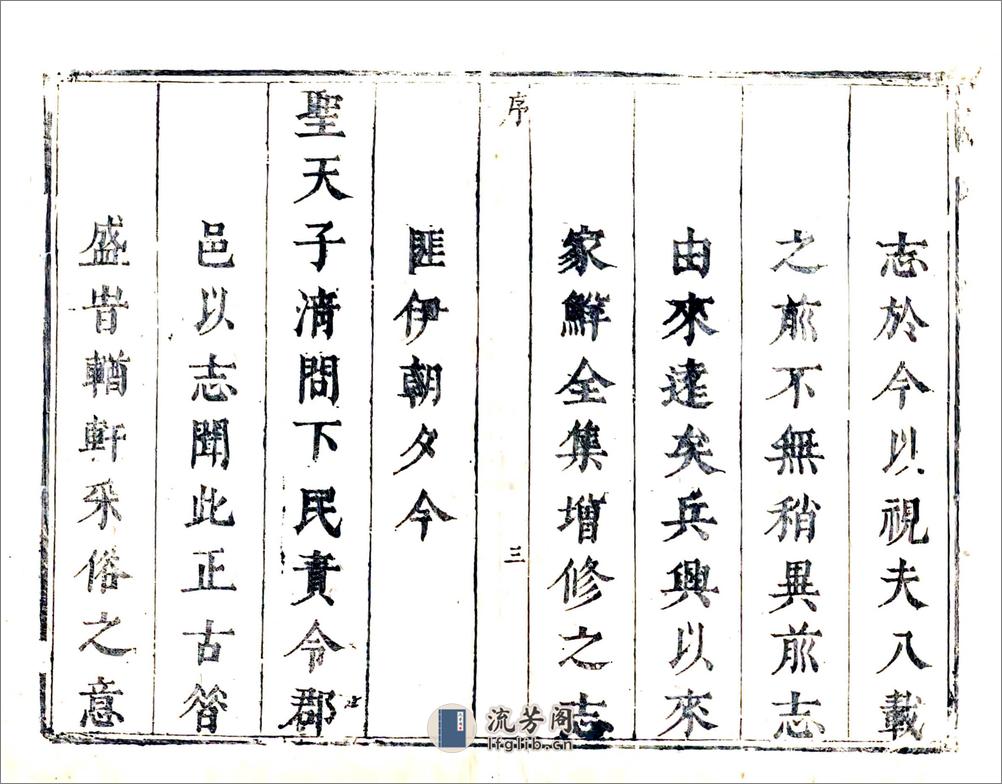 志於今以視夫八載
之前不無稍異前志
由來逺矣兵興以來
家鮮全集增修之志
序
三
匪伊朝夕今
聖天子清問下民責令郡
邑以志聞此正古㫺
盛旹輶軒采俗之意
流芳阁
lfglib.cn